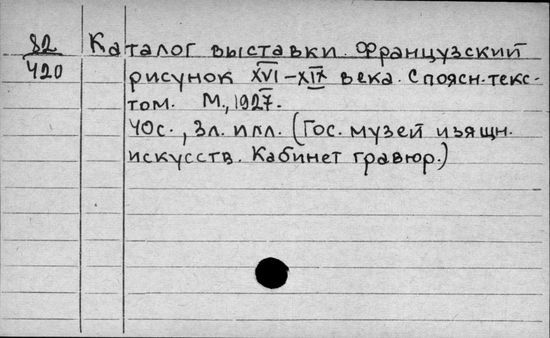 82
420
Каталог выставки. Французский
рисунок XVI–XIX века. С поясн. текс-
том. М., 1927.
40с., 3л. илл. (Гос. музей изящн.
искусств. Кабинет гравюр.)